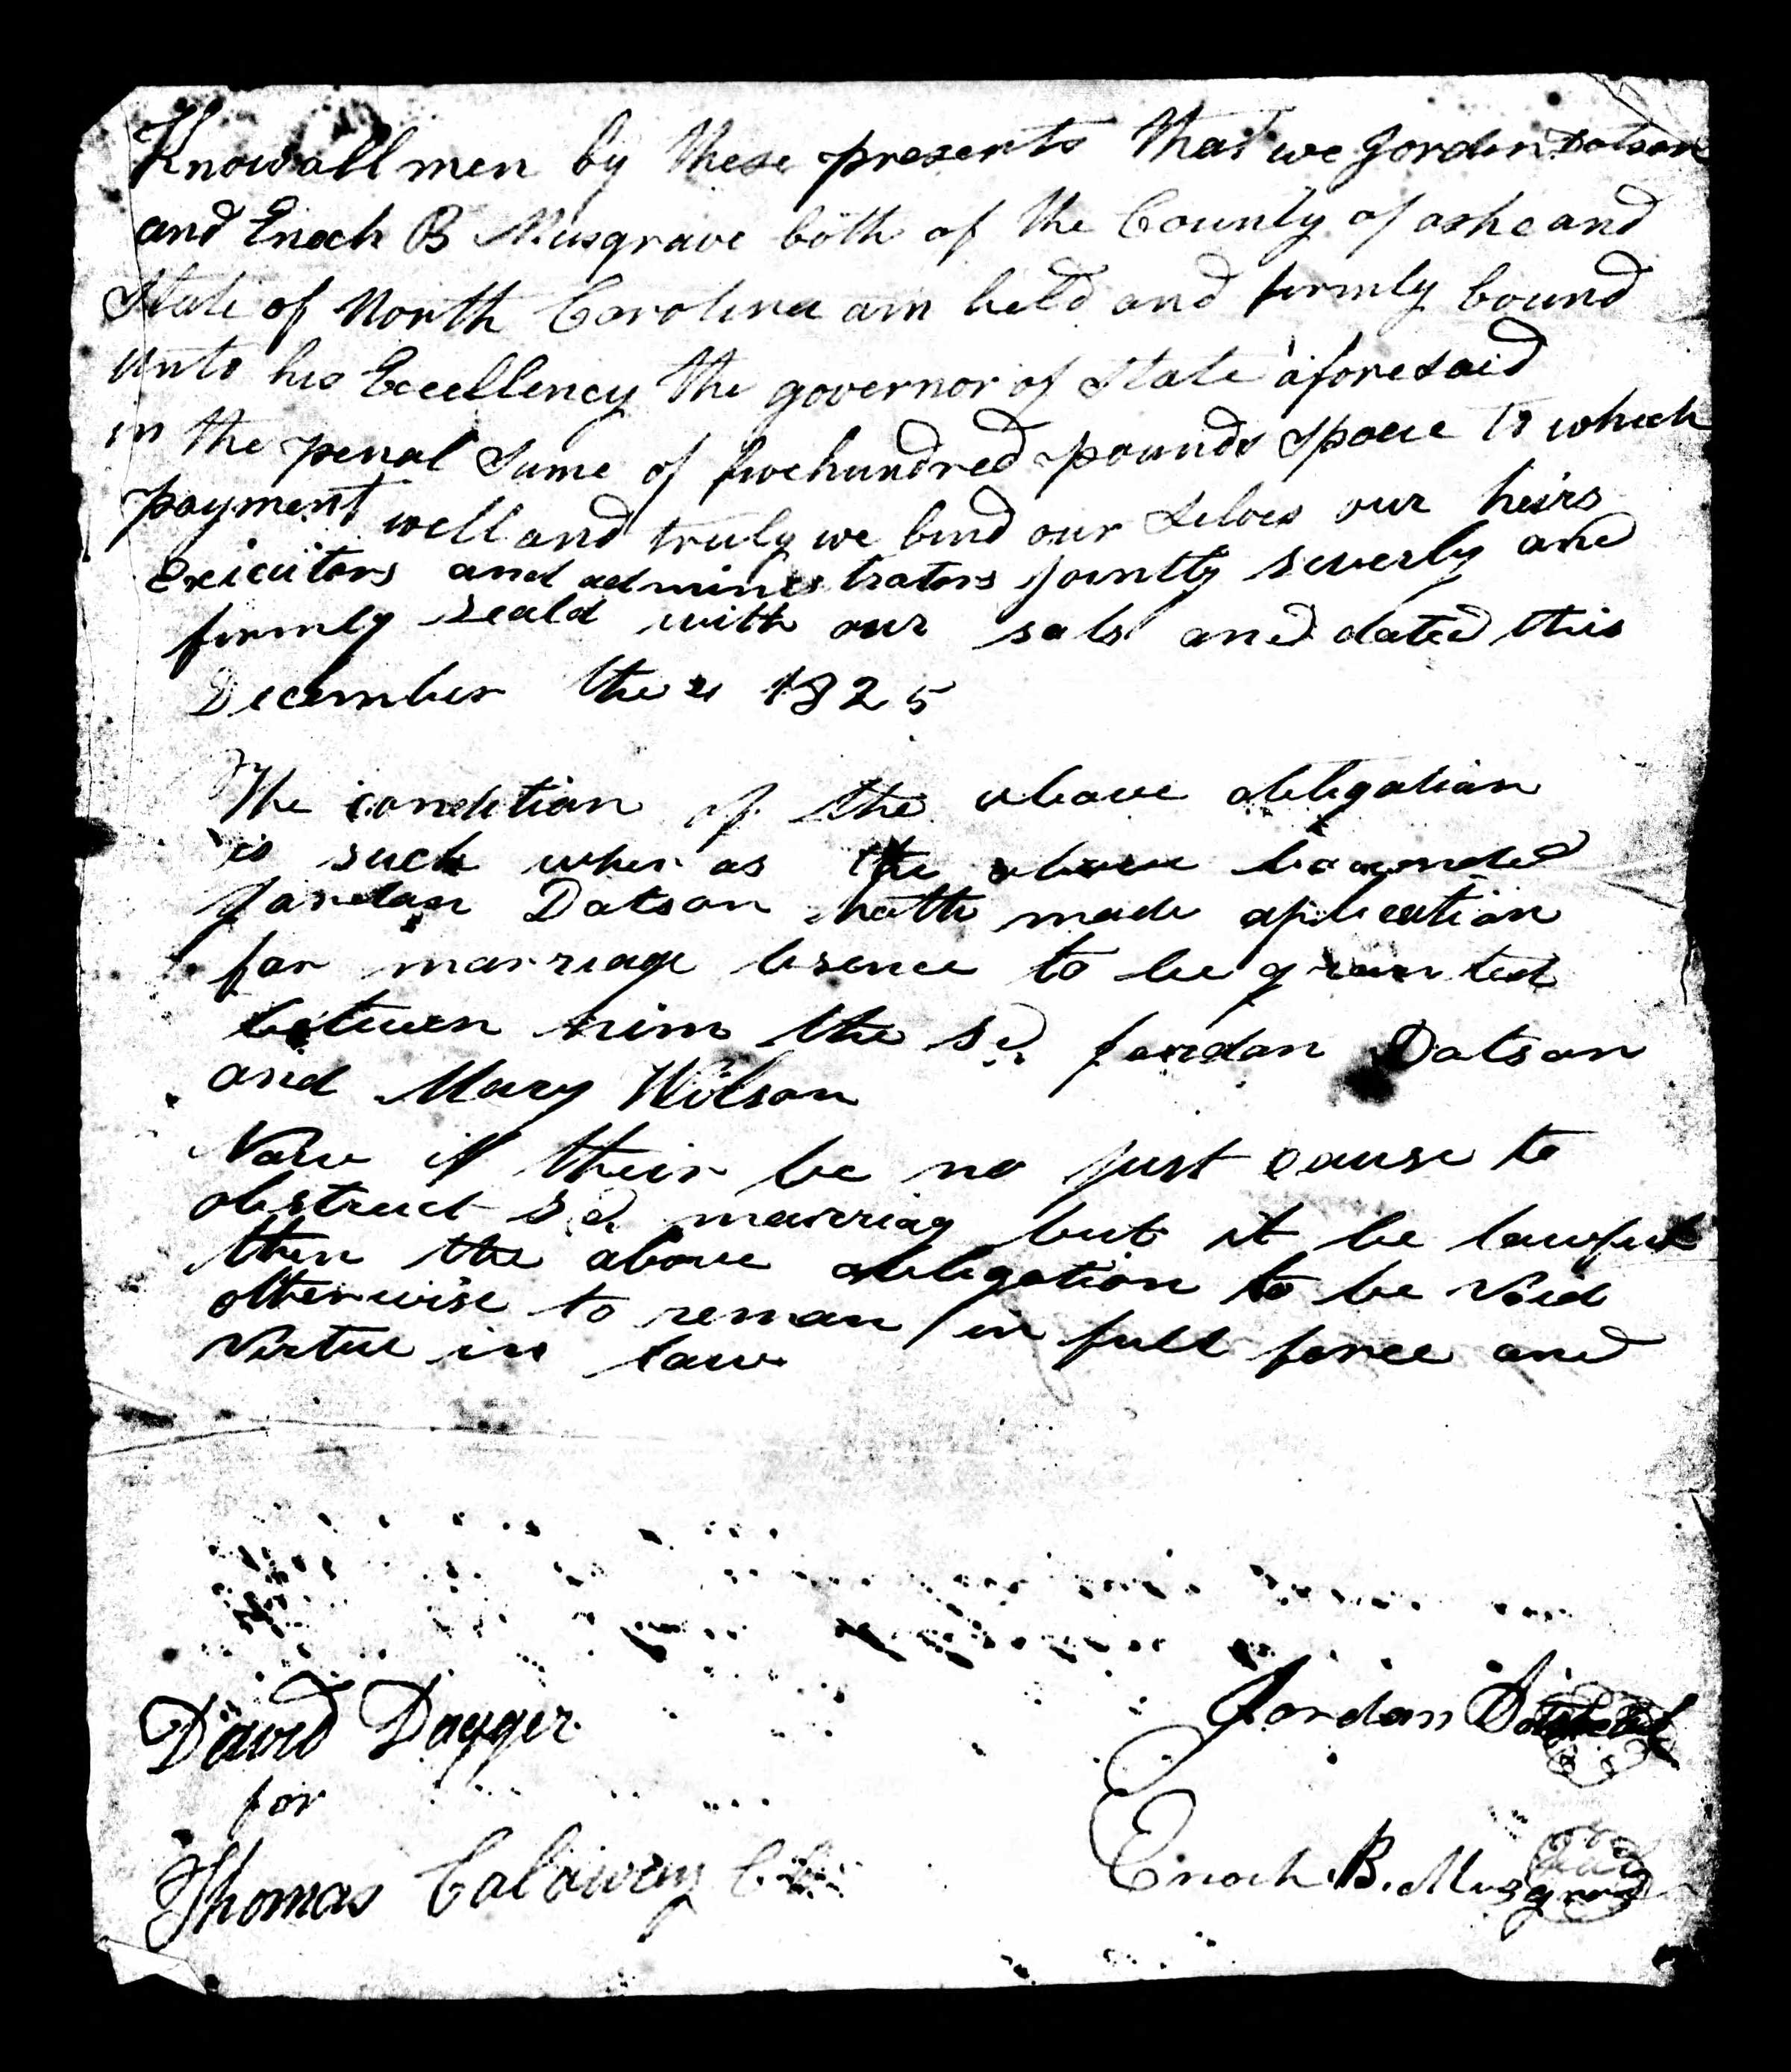 Know all men by these presents that we Jorden Dotson
and Enoch B Musgrave both of the County of ashe and
State of North Carolina am held and firmly bound
unto his Excellency the governor of State aforesaid
in the penal sume of five hundred pounds to which
payment well and truly we bind our selves our heirs
Exicutors and administrators jointly severly and
firmly seald with our sals and dated this
December the 1825
The condition of the above obligation
is such wher as the above bounded
Jordan Dotson hath made aplication
for marriage lisence to be granted
between him the sd Jordan Dotson
and Mary Wilson
Now if their be no just cause to
obstruct sd marriag but it be lawful
then the above obligation to be void
otherwise to reman in full force and
virtue in law
David Dagger
for
Thomas Calaway
Jordan
Enoch B. Musgrave